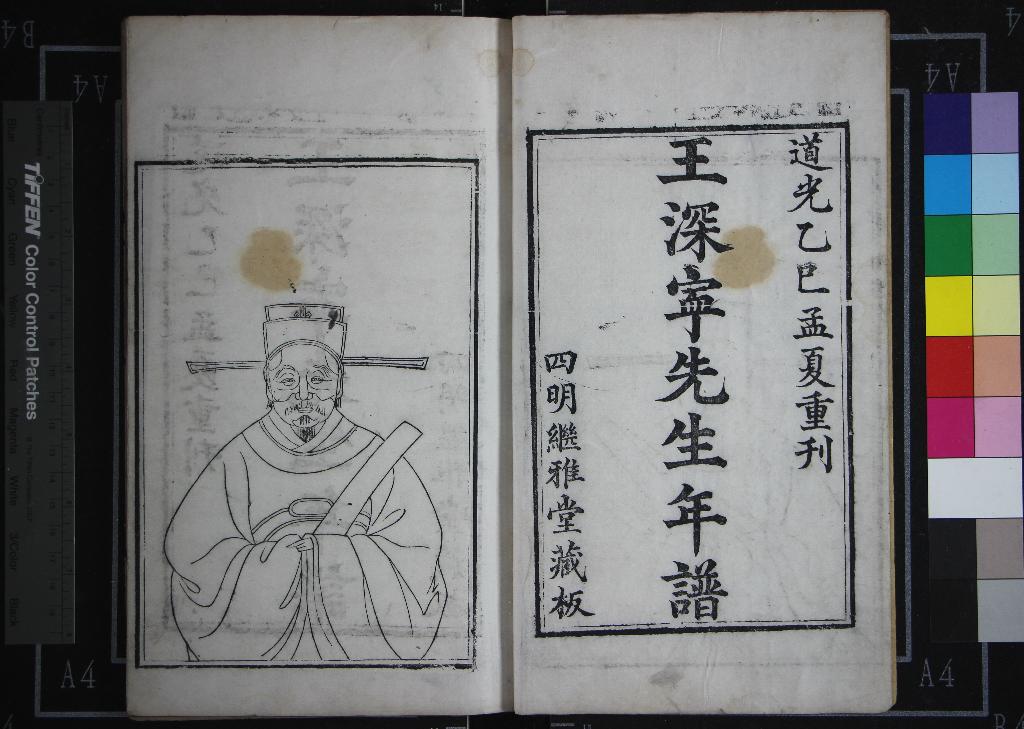 道光乙巳孟夏重刊
王深寧先生年譜
四明繼雅堂藏板
TIFFEN Color Control Patches
Blue
Cyan
Green
Yellow
Red
Magenta
White
3/Color
Black
A4
A4
A4
A4
B4